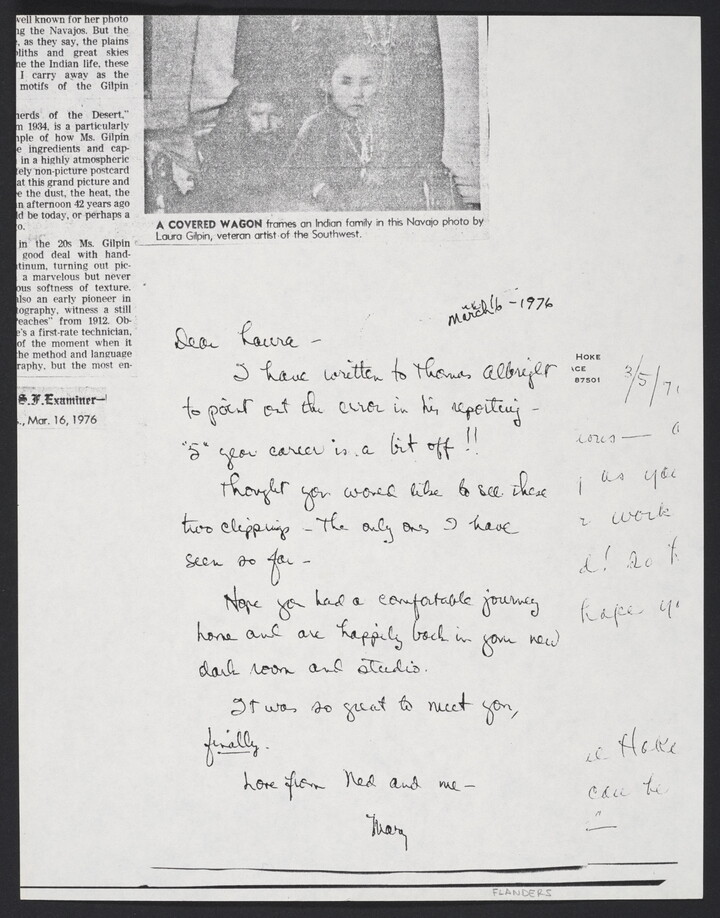 well known for her photo
ng the Navajos. But the
, as they say, the plains
oliths and great skies
ne the Indian life, these
I carry away as the
motifs of the Gilpin
herds of the Desert,"
m 1934, is a particularly
ple of how Ms. Gilpin
e ingredients and cap-
in a highly atmospheric
tely non-picture postcard
at this grand picture and
e the dust, the heat, the
n afternoon 42 years ago
ld be today, or perhaps a
o.
in the 20s Ms. Gilpin
good deal with hand-
tinum, turning out pic-
a marvelous but never
ous softness of texture.
also an early pioneer in
tography, witness a still
eaches" from 1912. Ob-
e's a first-rate technician,
of the moment when it
the method and language
raphy, but the most en-
S.F. Examiner
., Mar. 16, 1976
A COVERED WAGON frames an Indian family in this Navajo photo by
Laura Gilpin, veteran artist of the Southwest.
March 16 - 1976
Dear Laura -
I have written to Thomas Albright
to point out the error in his reporting -
"5" year career is a bit off!!
Thought you would like to see these
two clippings - The only ones I have
seen so far -
Hope you had a comfortable journey
home and are happily back in your new
dark room and studio.
It was so great to meet you,
finally.
Love from Ned and me -
Mary
HOKE
ACE
87501
3/5/7
as you
work
d! So
hope
Hoke
can be
FLANDERS